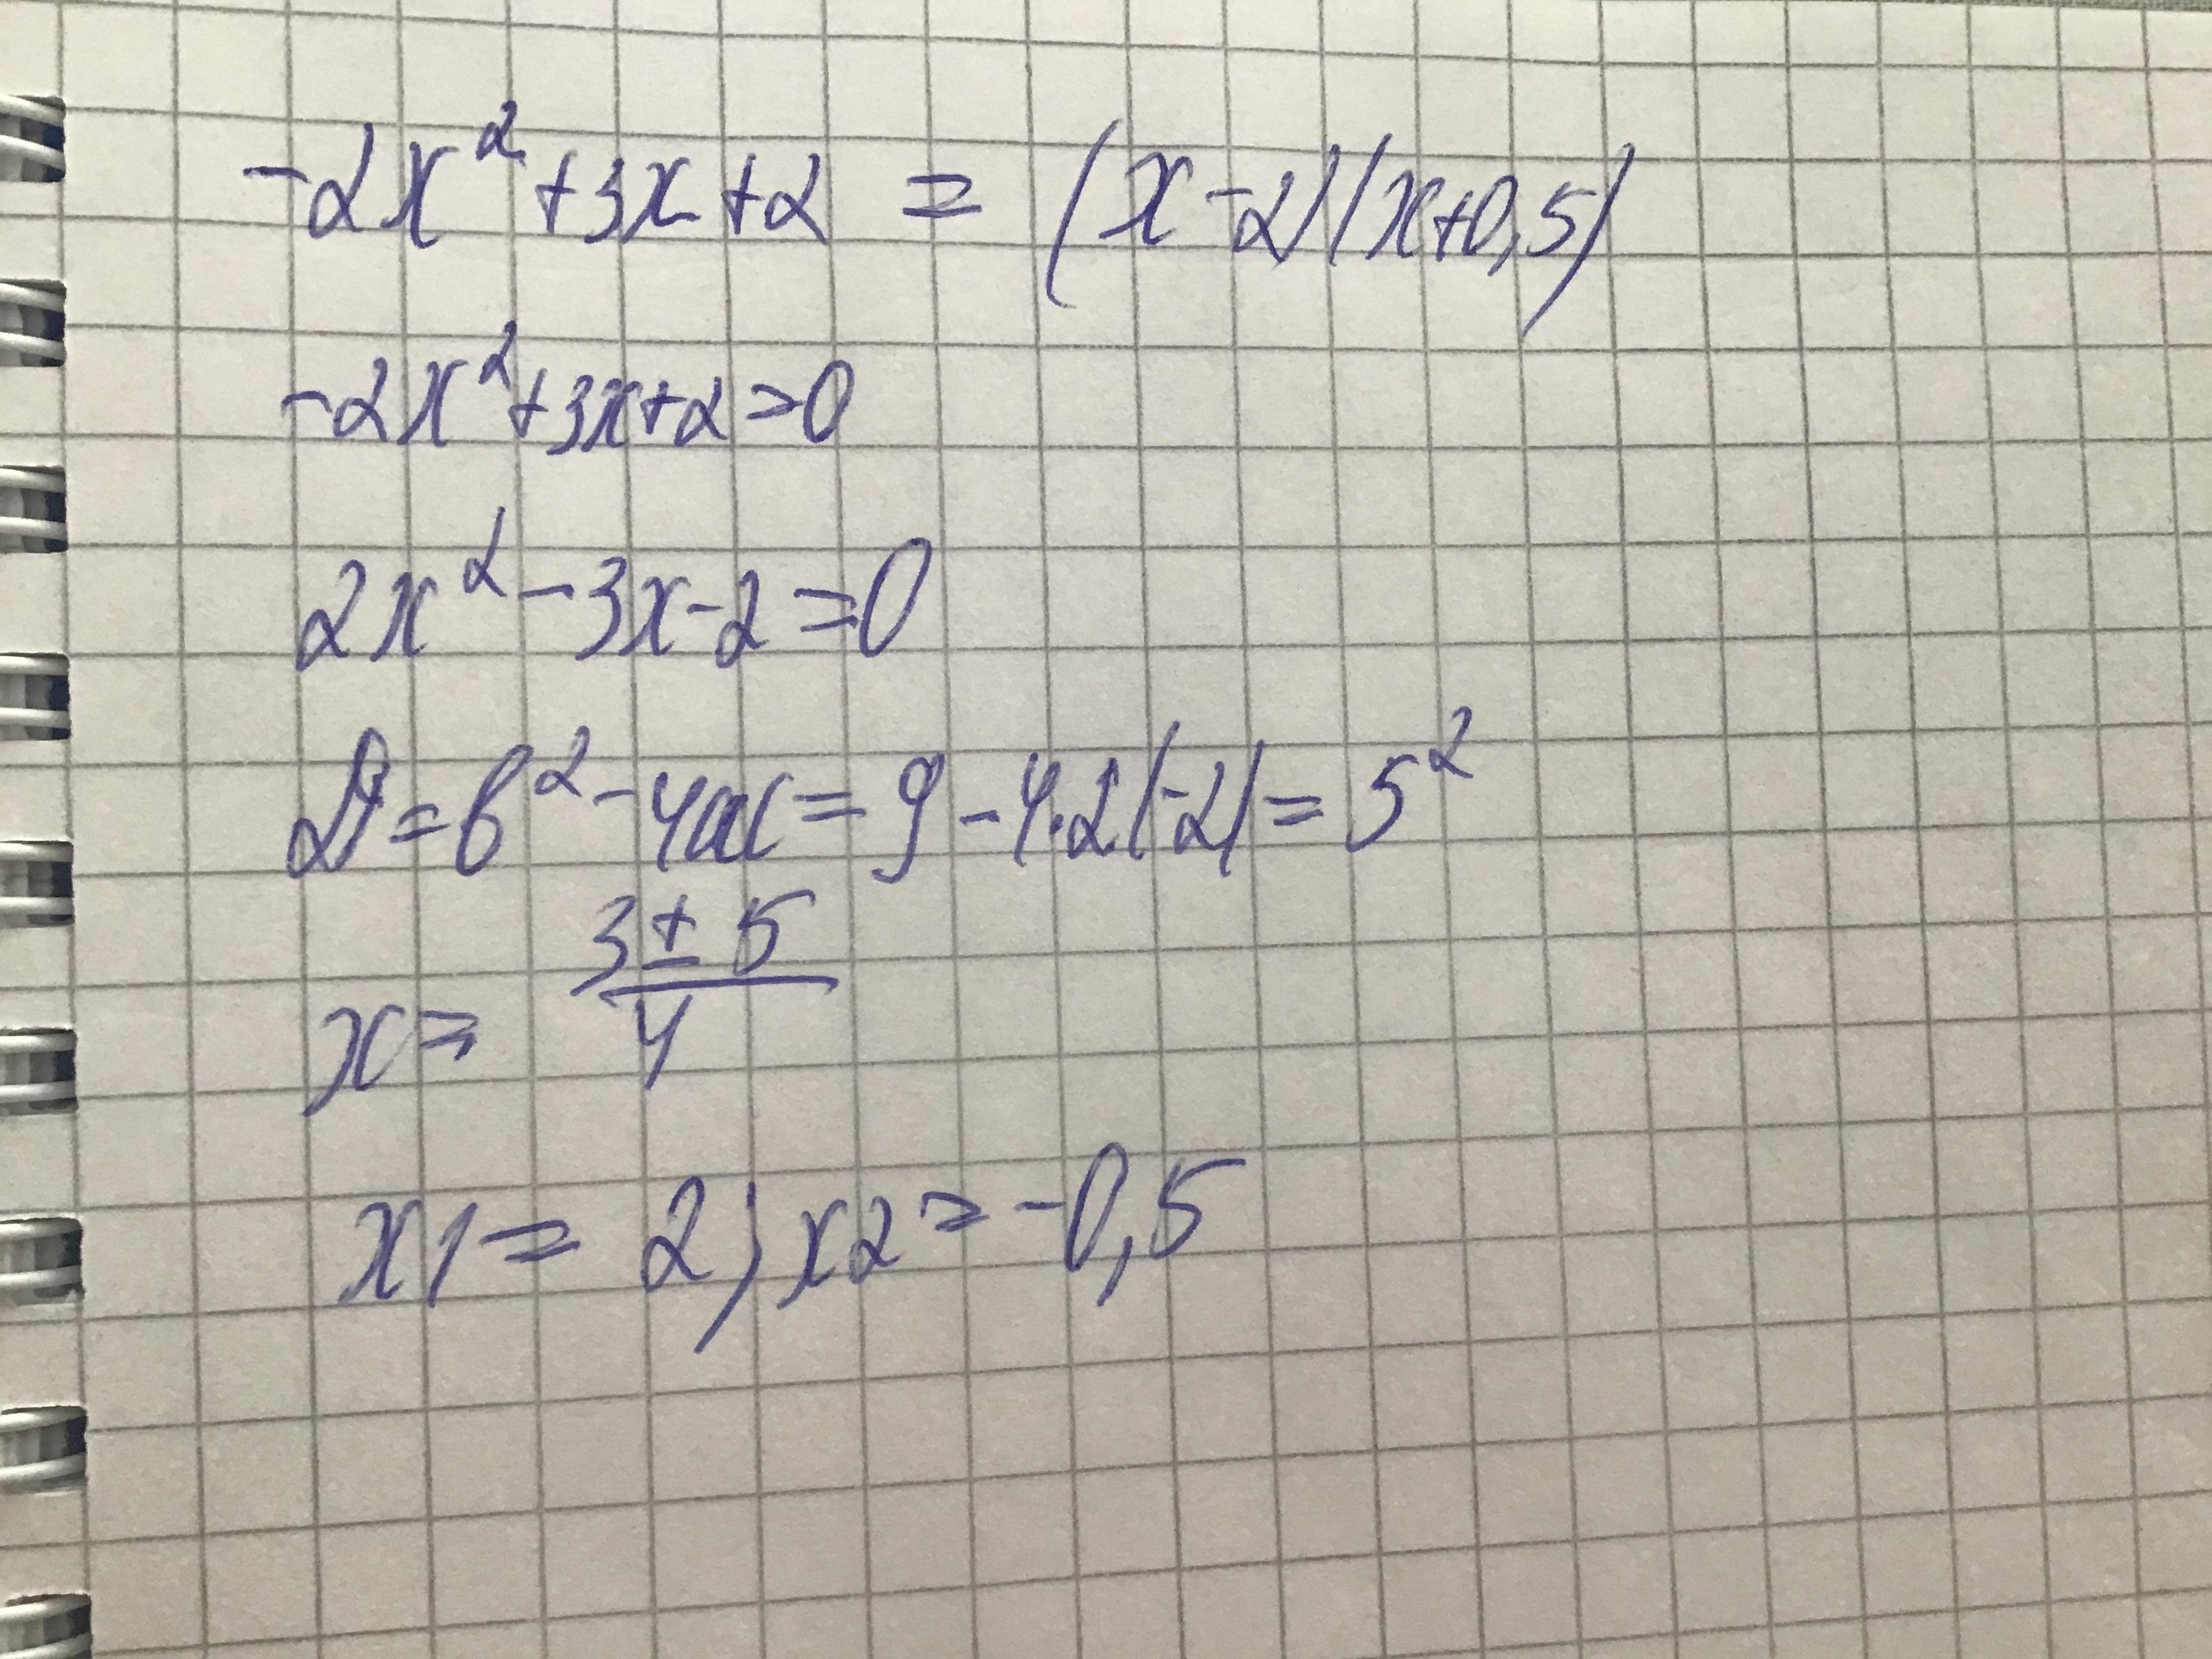 -2x² +3x +2 = (x-2)(x+0,5)
-2x²+3x+2=0
2x²-3x-2=0
D=b²-4ac=9-4·2(-2)=5²
x= 3±5/4
x1= 2; x2=-0,5